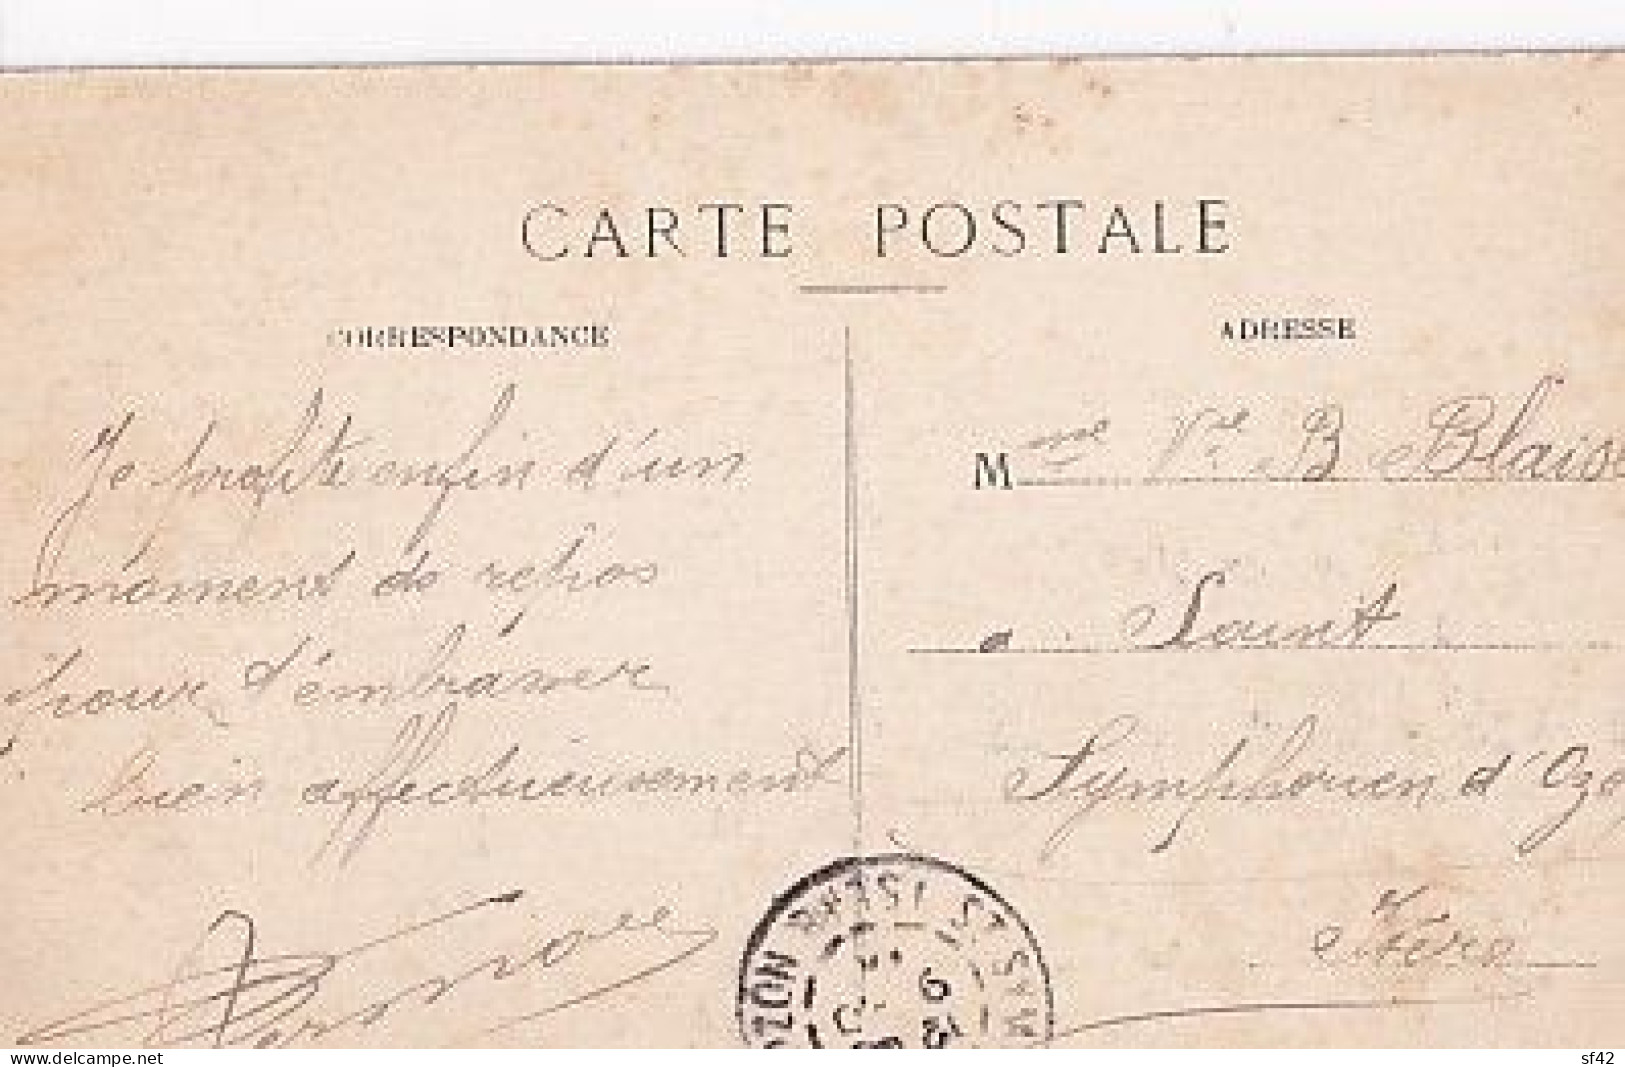 CARTE POSTALE
CORRESPONDANCE
Je profite enfin d'un
moment de repos
pour t'embrasser
bien affectueusement
ADRESSE
Mme Vve B Blaise
a Saint
Symphorien d'Ozo
Isère
ISERE
ZON
www.delcampe.net
sf42